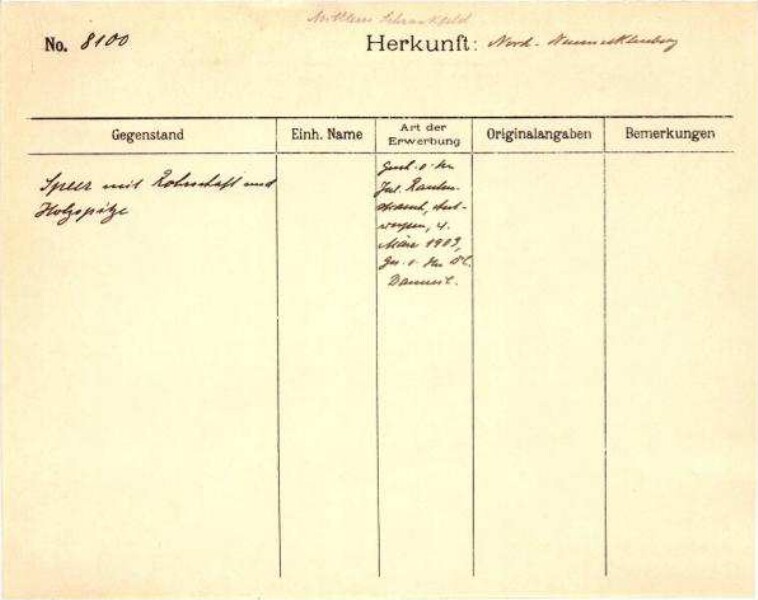 Mittleres Schrankfeld
No. 8100 Herkunft: Nord-Neumecklenburg
Gegenstand Einh. Name Art der Erwerbung Originalangaben Bemerkungen
Speer mit Rohrschaft und
Holzspitze
Gesch. v. Hn
Jul. Rauten-
strauch, Ant-
werpen, 4.
März 1909,
Ges. v. Hn
Danneil.